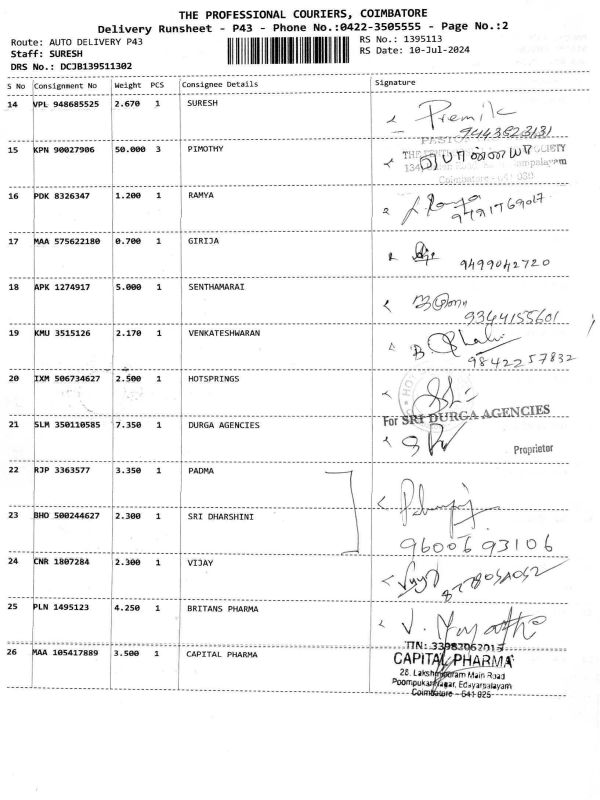 THE PROFESSIONAL COURIERS, COIMBATORE
Delivery Runsheet - P43 - Phone No.:0422-3505555 - Page No.:2
Route: AUTO DELIVERY P43 RS No.: 1395113
Staff: SURESH RS Date: 10-Jul-2024
DRS No.: DCJB139511302
S No Consignment No Weight PCS Consignee Details Signature
14 VPL 948685525 2.670 1 SURESH Premik
9443823131
15 KPN 90027906 50.000 3 PIMOTHY
PASTOR
Coimbatore - 641 030
16 PDK 8326347 1.200 1 RAMYA
17 MAA 575622180 0.700 1 GIRIJA
9499042720
18 APK 1274917 5.000 1 SENTHAMARAI
9344155601
19 KMU 3515126 2.170 1 VENKATESHWARAN
9842257832
20 IXM 506734627 2.500 1 HOTSPRINGS
For SRI DURGA AGENCIES
21 SLM 350110585 7.350 1 DURGA AGENCIES
Proprietor
22 RJP 3363577 3.350 1 PADMA
23 BHO 500244627 2.300 1 SRI DHARSHINI
9600693106
24 CNR 1807284 2.300 1 VIJAY
25 PLN 1495123 4.250 1 BRITANS PHARMA
TIN: 33983062015
26 MAA 105417889 3.500 1 CAPITAL PHARMA CAPITAL PHARMA
28, Lakshmipuram Main Road
Poompukar Nagar, Edayarpalayam
Coimbatore - 641 025